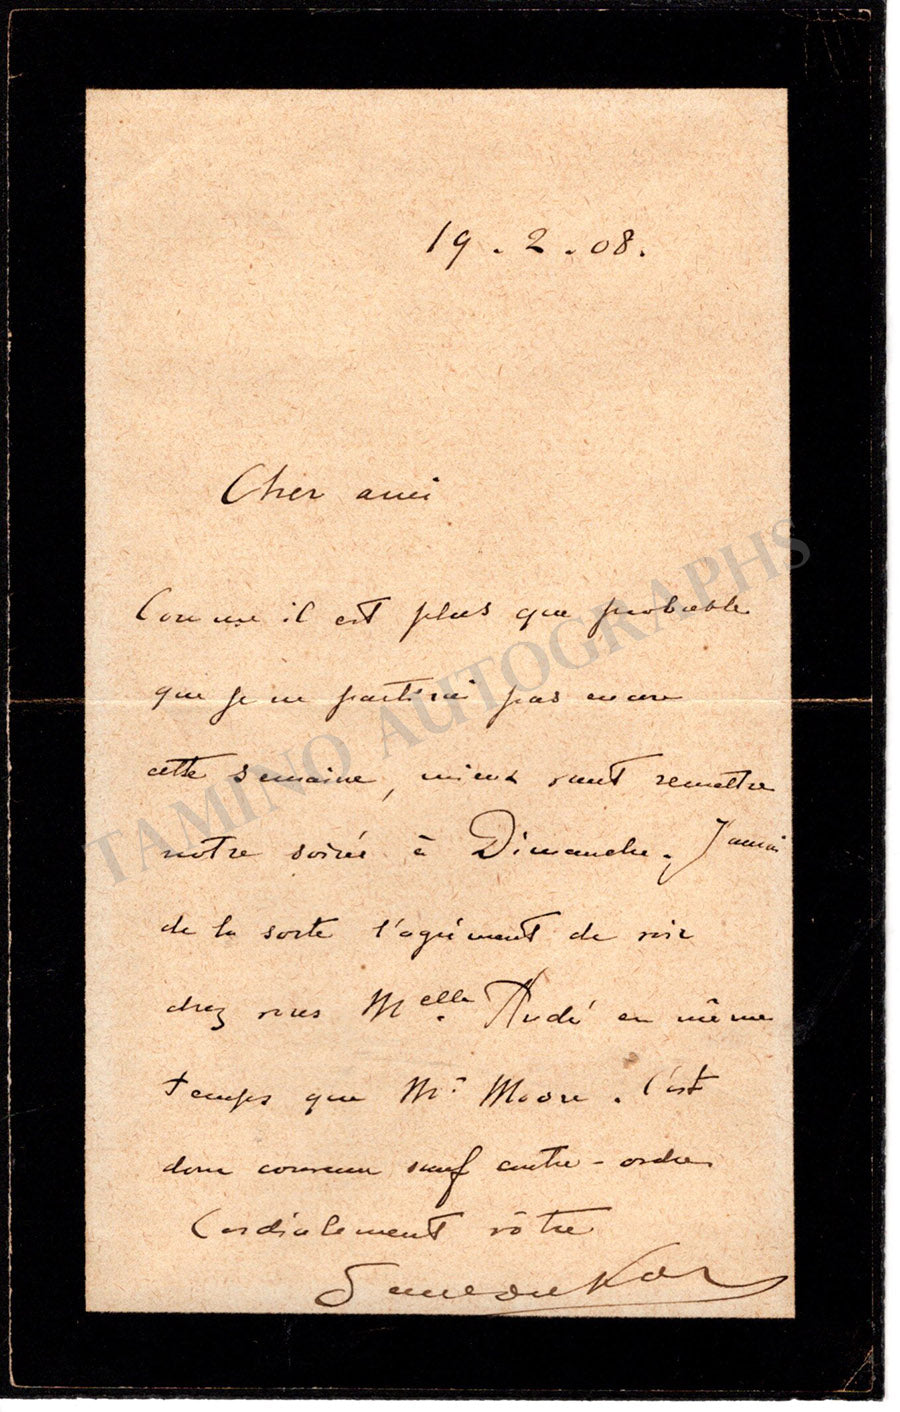 19.2.08.
Cher ami
Comme il est plus que probable
que je ne partirai pas encore
cette semaine, mieux vaut remettre
notre soirée à Dimanche. J'aurai
de la sorte l'agrément de voir
chez vous Melle. André en même
temps que Mr Moore. C'est
donc convenu sauf contre-ordre
Cordialement vôtre
Paul Dukas
TAMINO AUTOGRAPHS